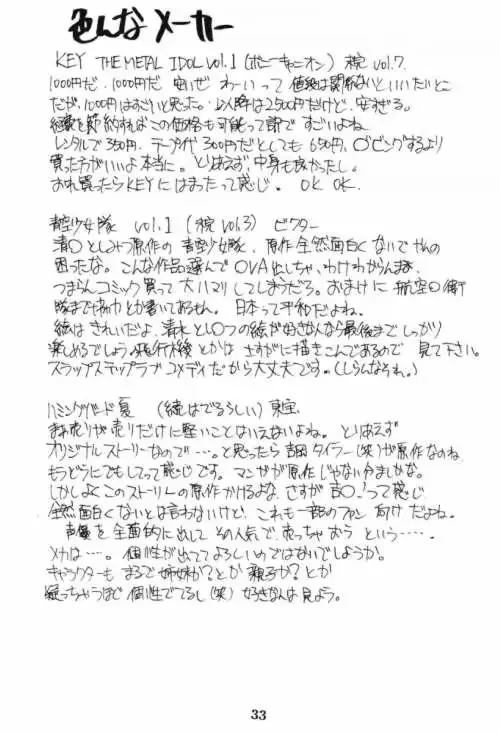 色んなメーカー
KEY THE METAL IDOL vol.1 (ポニーキャニオン) 続 vol.7
1000円だ、1000円だ 安いぜ わーいって 値段は関係ないといいたいとこ
だが、1000円はすごいと思った。2以降は2500円だけど、安すぎる。
経費を節約すればこの価格も可能って訳で すごいよね
レンタルで350円、テープ代300円だとしても 650円、ダビングするより
買った方がいいよ本当に。とりあえず、中身も良かったし。
おれ買ったらKEYにはまったって感じ。 OK OK.
青空少女隊 vol.1 (続 vol.3) ビクター
清○としみつ原作の青空少女隊、原作全然面白くないで
困ったな。こんな作品選んでOVA出しちゃ、わけわからんまま、
つまらんコミック買って大ハマリしてしまうだろ。おまけに 航空○衛
隊まで協力とか書いてあるもん。日本って平和だよね。
絵はきれいだよ、清水とし○つの絵が好きな人なら最後までしっかり
楽しめるでしょう。飛行機とかは さすがに描きこんであるので 見て下さい。
スラップスティックラブコメディだから大丈夫です。(しらんなそれ。)
ハミングバード夏 (続はでるらしい) 東宝
売りが売りだけに堅いことはいえないよね。とりあえず
オリジナルストーリーなので…。と思ったら 吉岡タイラー(笑)が原作なのね
もうどうにでもしてって感じです。マンガが原作じゃない
しかしよくこのストーリーの原作かけるよな、さすが吉○!って感じ
全然面白くないとは言わないけど、これも一部のファン向けだよね。
声優を全面的に出して その人気で、売っちゃおう という……
メカは…。個性が出ててよろしいのではないでしょうか。
キャラクターもまるで姉妹か?とか親子か?とか
疑っちゃうほど個性でてるし(笑) 好きな人は見よう。
33